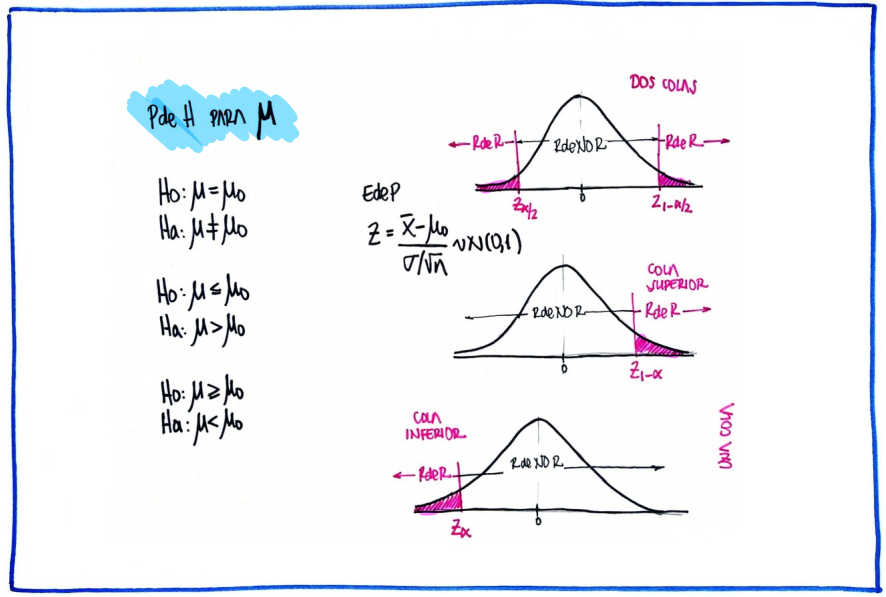 P de H PARA μ
Ho: μ = μ0
Ha: μ ≠ μ0
Ho: μ ≤ μ0
Ha: μ > μ0
Ho: μ ≥ μ0
Ha: μ < μ0
E de P
Z = (x̄ - μ0) / (σ/√n) ~ N(0,1)
DOS COLAS
R de R
R de NO R
R de R
Zα/2
0
Z1-α/2
COLA
SUPERIOR
R de NO R
R de R
0
Z1-α
COLA
INFERIOR
R de R
R de NO R
Zα
0
UNA COLA